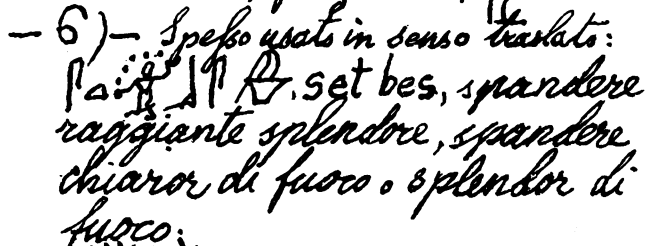 – 6) – Spesso usato in senso traslato:
set bes, spandere
raggiante splendore, spandere
chiaror di fuoco o splendor di
fuoco;